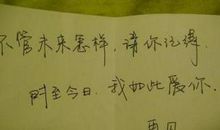 不管未来怎样，请你记得，
时至今日，我如此爱你.
再见